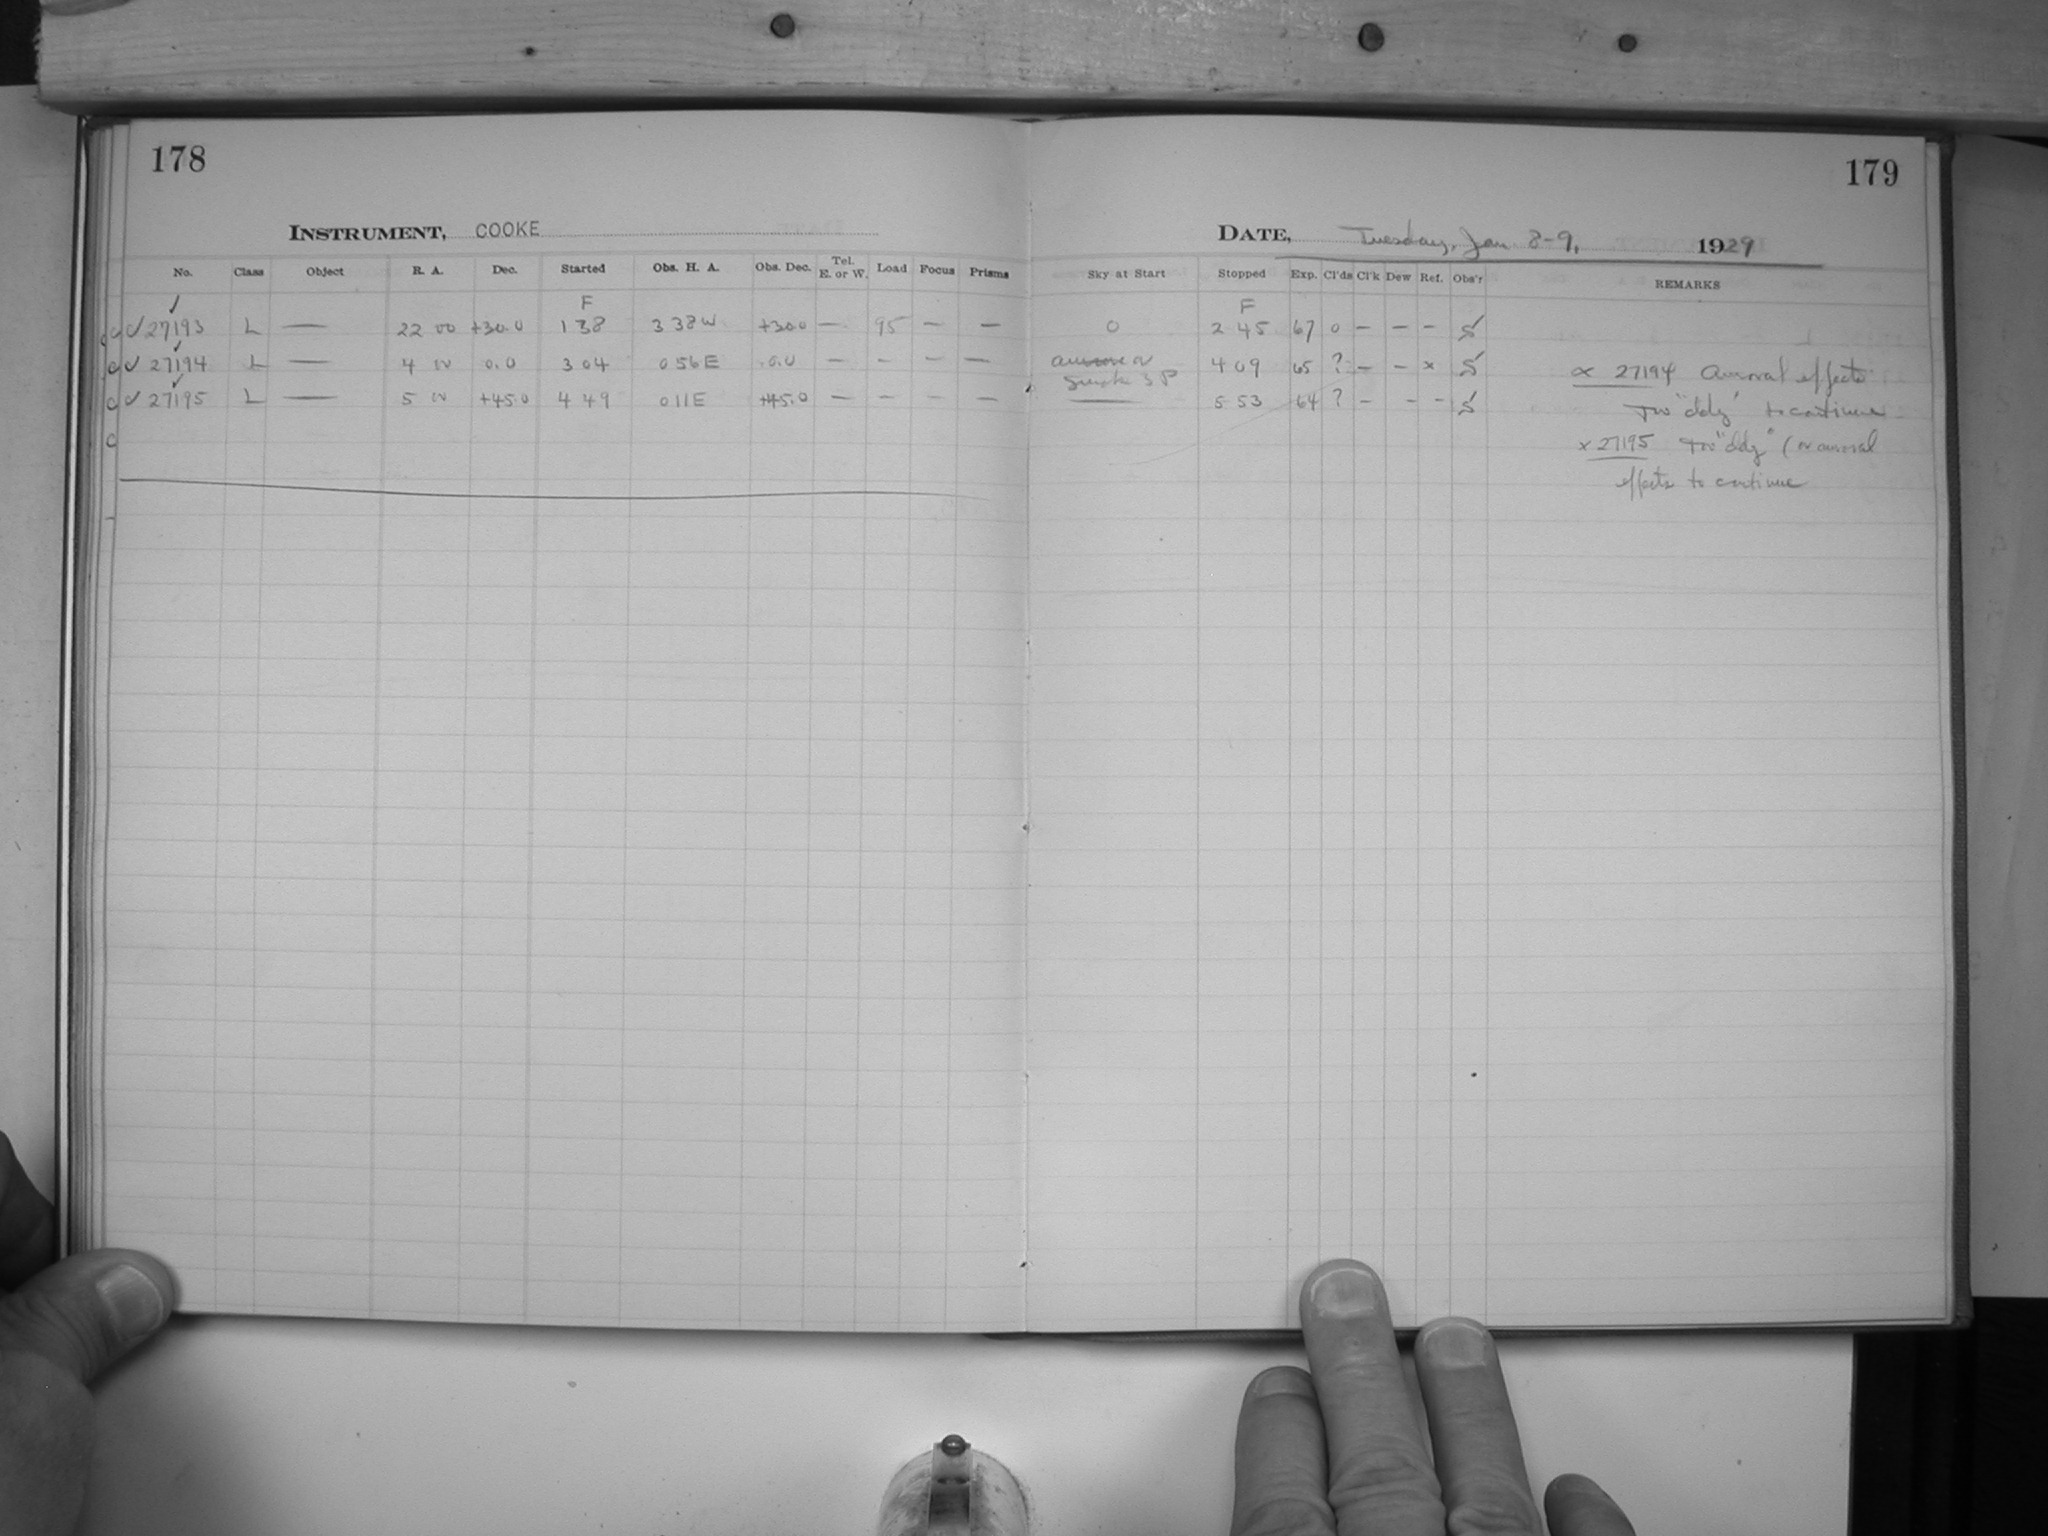 178
INSTRUMENT, COOKE
No. Class Object R. A. Dec. Started Obs. H. A. Obs. Dec. Tel. E. or W. Load Focus Prisms
F
✓ 27193 L — 22 00 +30.0 1 38 3 38 W +30.0 — 95 — —
✓ 27194 L — 4 00 0.0 3 04 0 56 E 0.0 — — — —
✓ 27195 L — 5 00 +45.0 4 49 0 11 E +45.0 — — — —
179
DATE, Tuesday, Jan 8-9, 1929
Sky at Start Stopped Exp. Cl'ds Cl'k Dew Ref. Obs'r REMARKS
F
0 2 45 67 0 — — — S
aurora or 4 09 65 ? — — x S
smoke 3 P
— 5 53 64 ? — — — S
x 27194 Auroral effects
Too "ddy" to continue
x 27195 Too "ddy" (or auroral
effects to continue